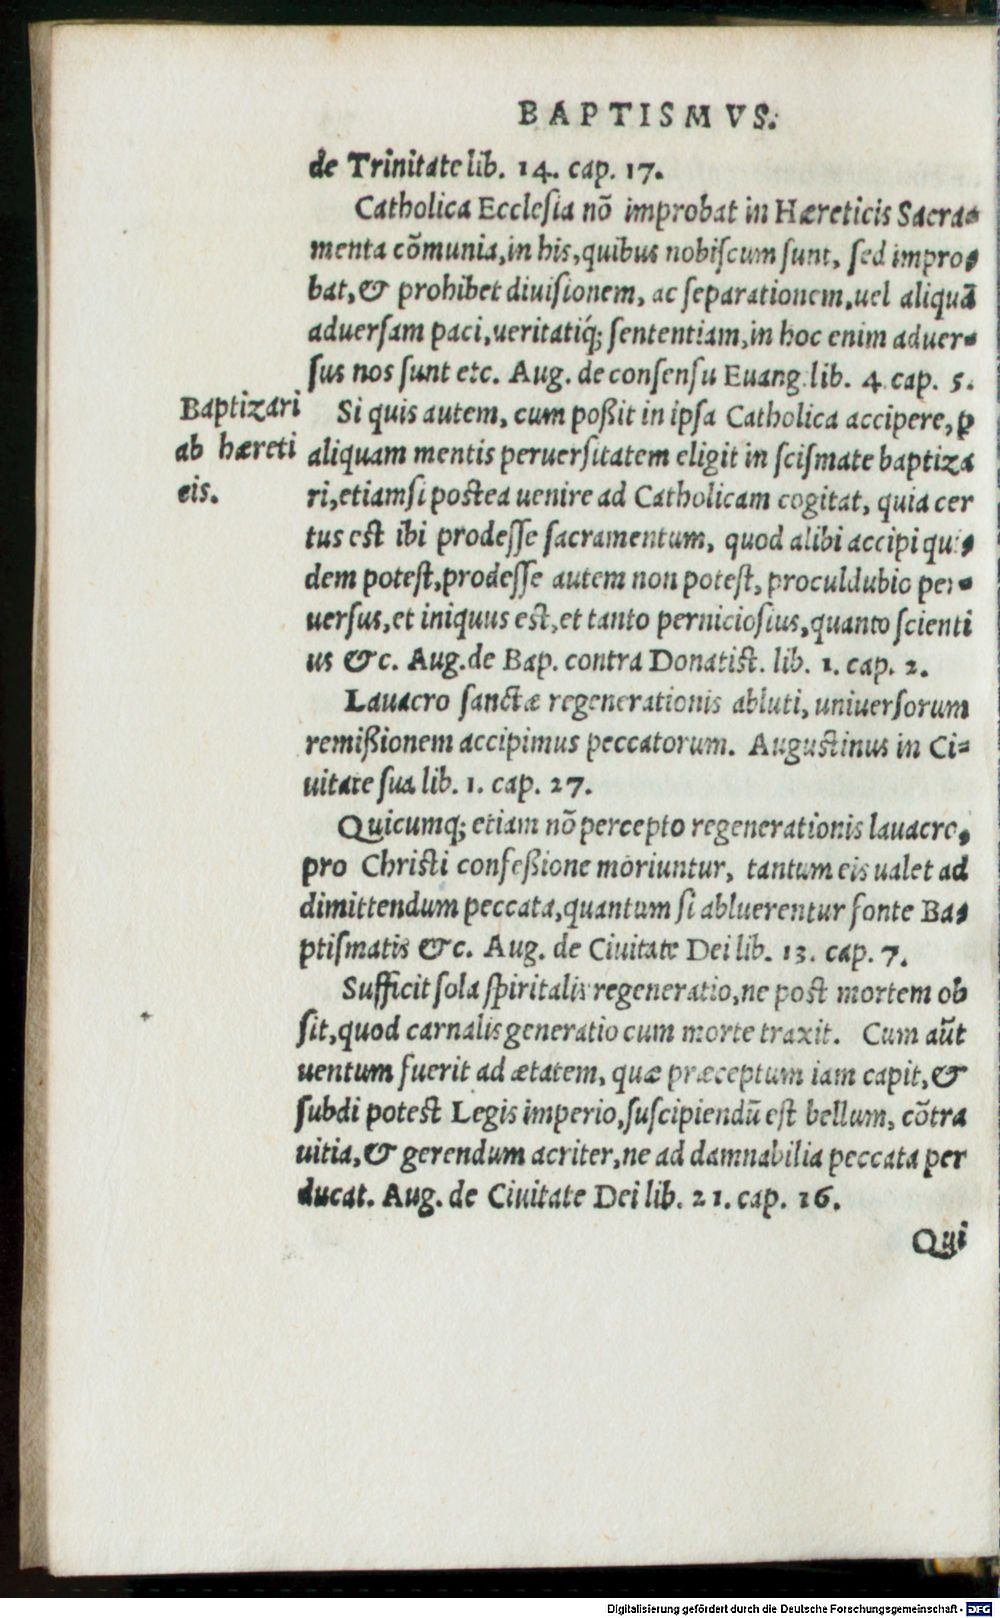 BAPTISMVS.
de Trinitate lib. 14. cap. 17.
Catholica Ecclesia nō improbat in Hæreticis Sacra-
menta cōmunia, in his, quibus nobiscum sunt, sed impro-
bat, & prohibet diuisionem, ac separationem, uel aliquā
aduersam paci, ueritatiq́; sententiam, in hoc enim aduer-
sus nos sunt etc. Aug. de consensu Euang. lib. 4. cap. 5.
Baptizari
ab hæreti
cis.
Si quis autem, cum poßit in ipsa Catholica accipere, ꝑ
aliquam mentis peruersitatem eligit in scismate baptiza
ri, etiamsi postea uenire ad Catholicam cogitat, quia cer
tus est ibi prodesse sacramentum, quod alibi accipi qui-
dem potest, prodesse autem non potest, proculdubio per-
uersus, et iniquus est, et tanto perniciosius, quanto scienti
us &c. Aug. de Bap. contra Donatist. lib. 1. cap. 2.
Lauacro sanctæ regenerationis abluti, uniuersorum
remißionem accipimus peccatorum. Augustinus in Ci-
uitate sua lib. 1. cap. 27.
Quicumq; etiam nō percepto regenerationis lauacro,
pro Christi confeßione moriuntur, tantum eis ualet ad
dimittendum peccata, quantum si abluerentur fonte Ba-
ptismatis &c. Aug. de Ciuitate Dei lib. 13. cap. 7.
Sufficit sola spiritalis regeneratio, ne post mortem ob
sit, quod carnalis generatio cum morte traxit. Cum aūt
uentum fuerit ad ætatem, quæ præceptum iam capit, &
subdi potest Legis imperio, suscipiendū est bellum, cōtra
uitia, & gerendum acriter, ne ad damnabilia peccata per
ducat. Aug. de Ciuitate Dei lib. 21. cap. 16.
Qui
Digitalisierung gefördert durch die Deutsche Forschungsgemeinschaft - DFG